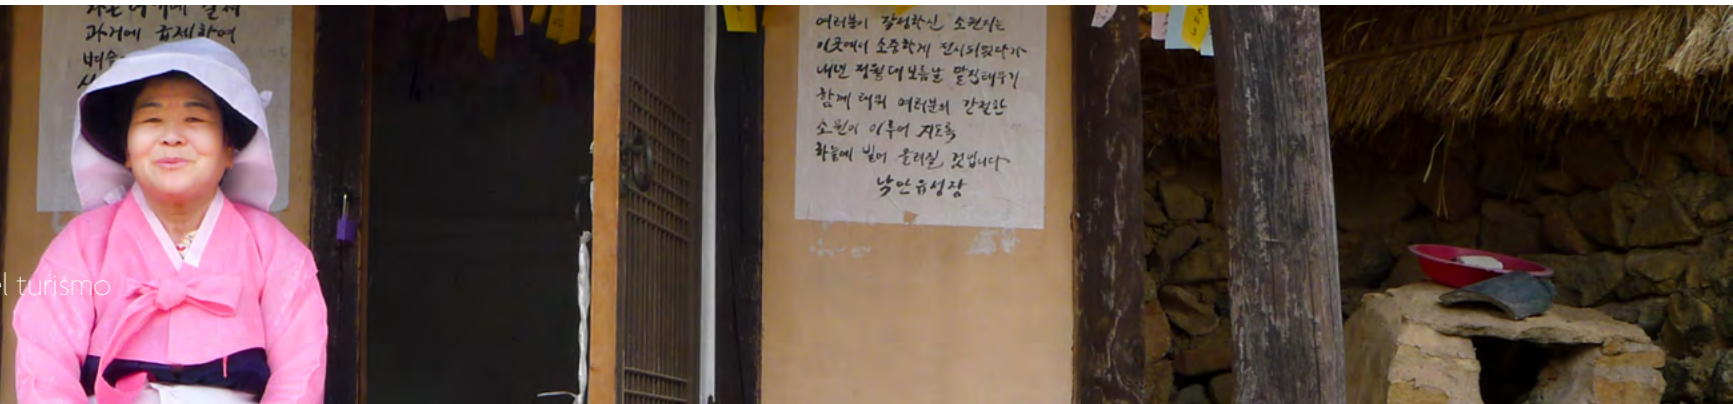 과거에 급제하여
el turismo
여러분이 작성하신 소원지는
이곳에서 소중하게 전시되었다가
내년 정월대보름날 달집태우기
함께 태워 여러분의 간절한
소원이 이루어 지도록
하늘에 빌어 올려질 것입니다
낙안읍성장